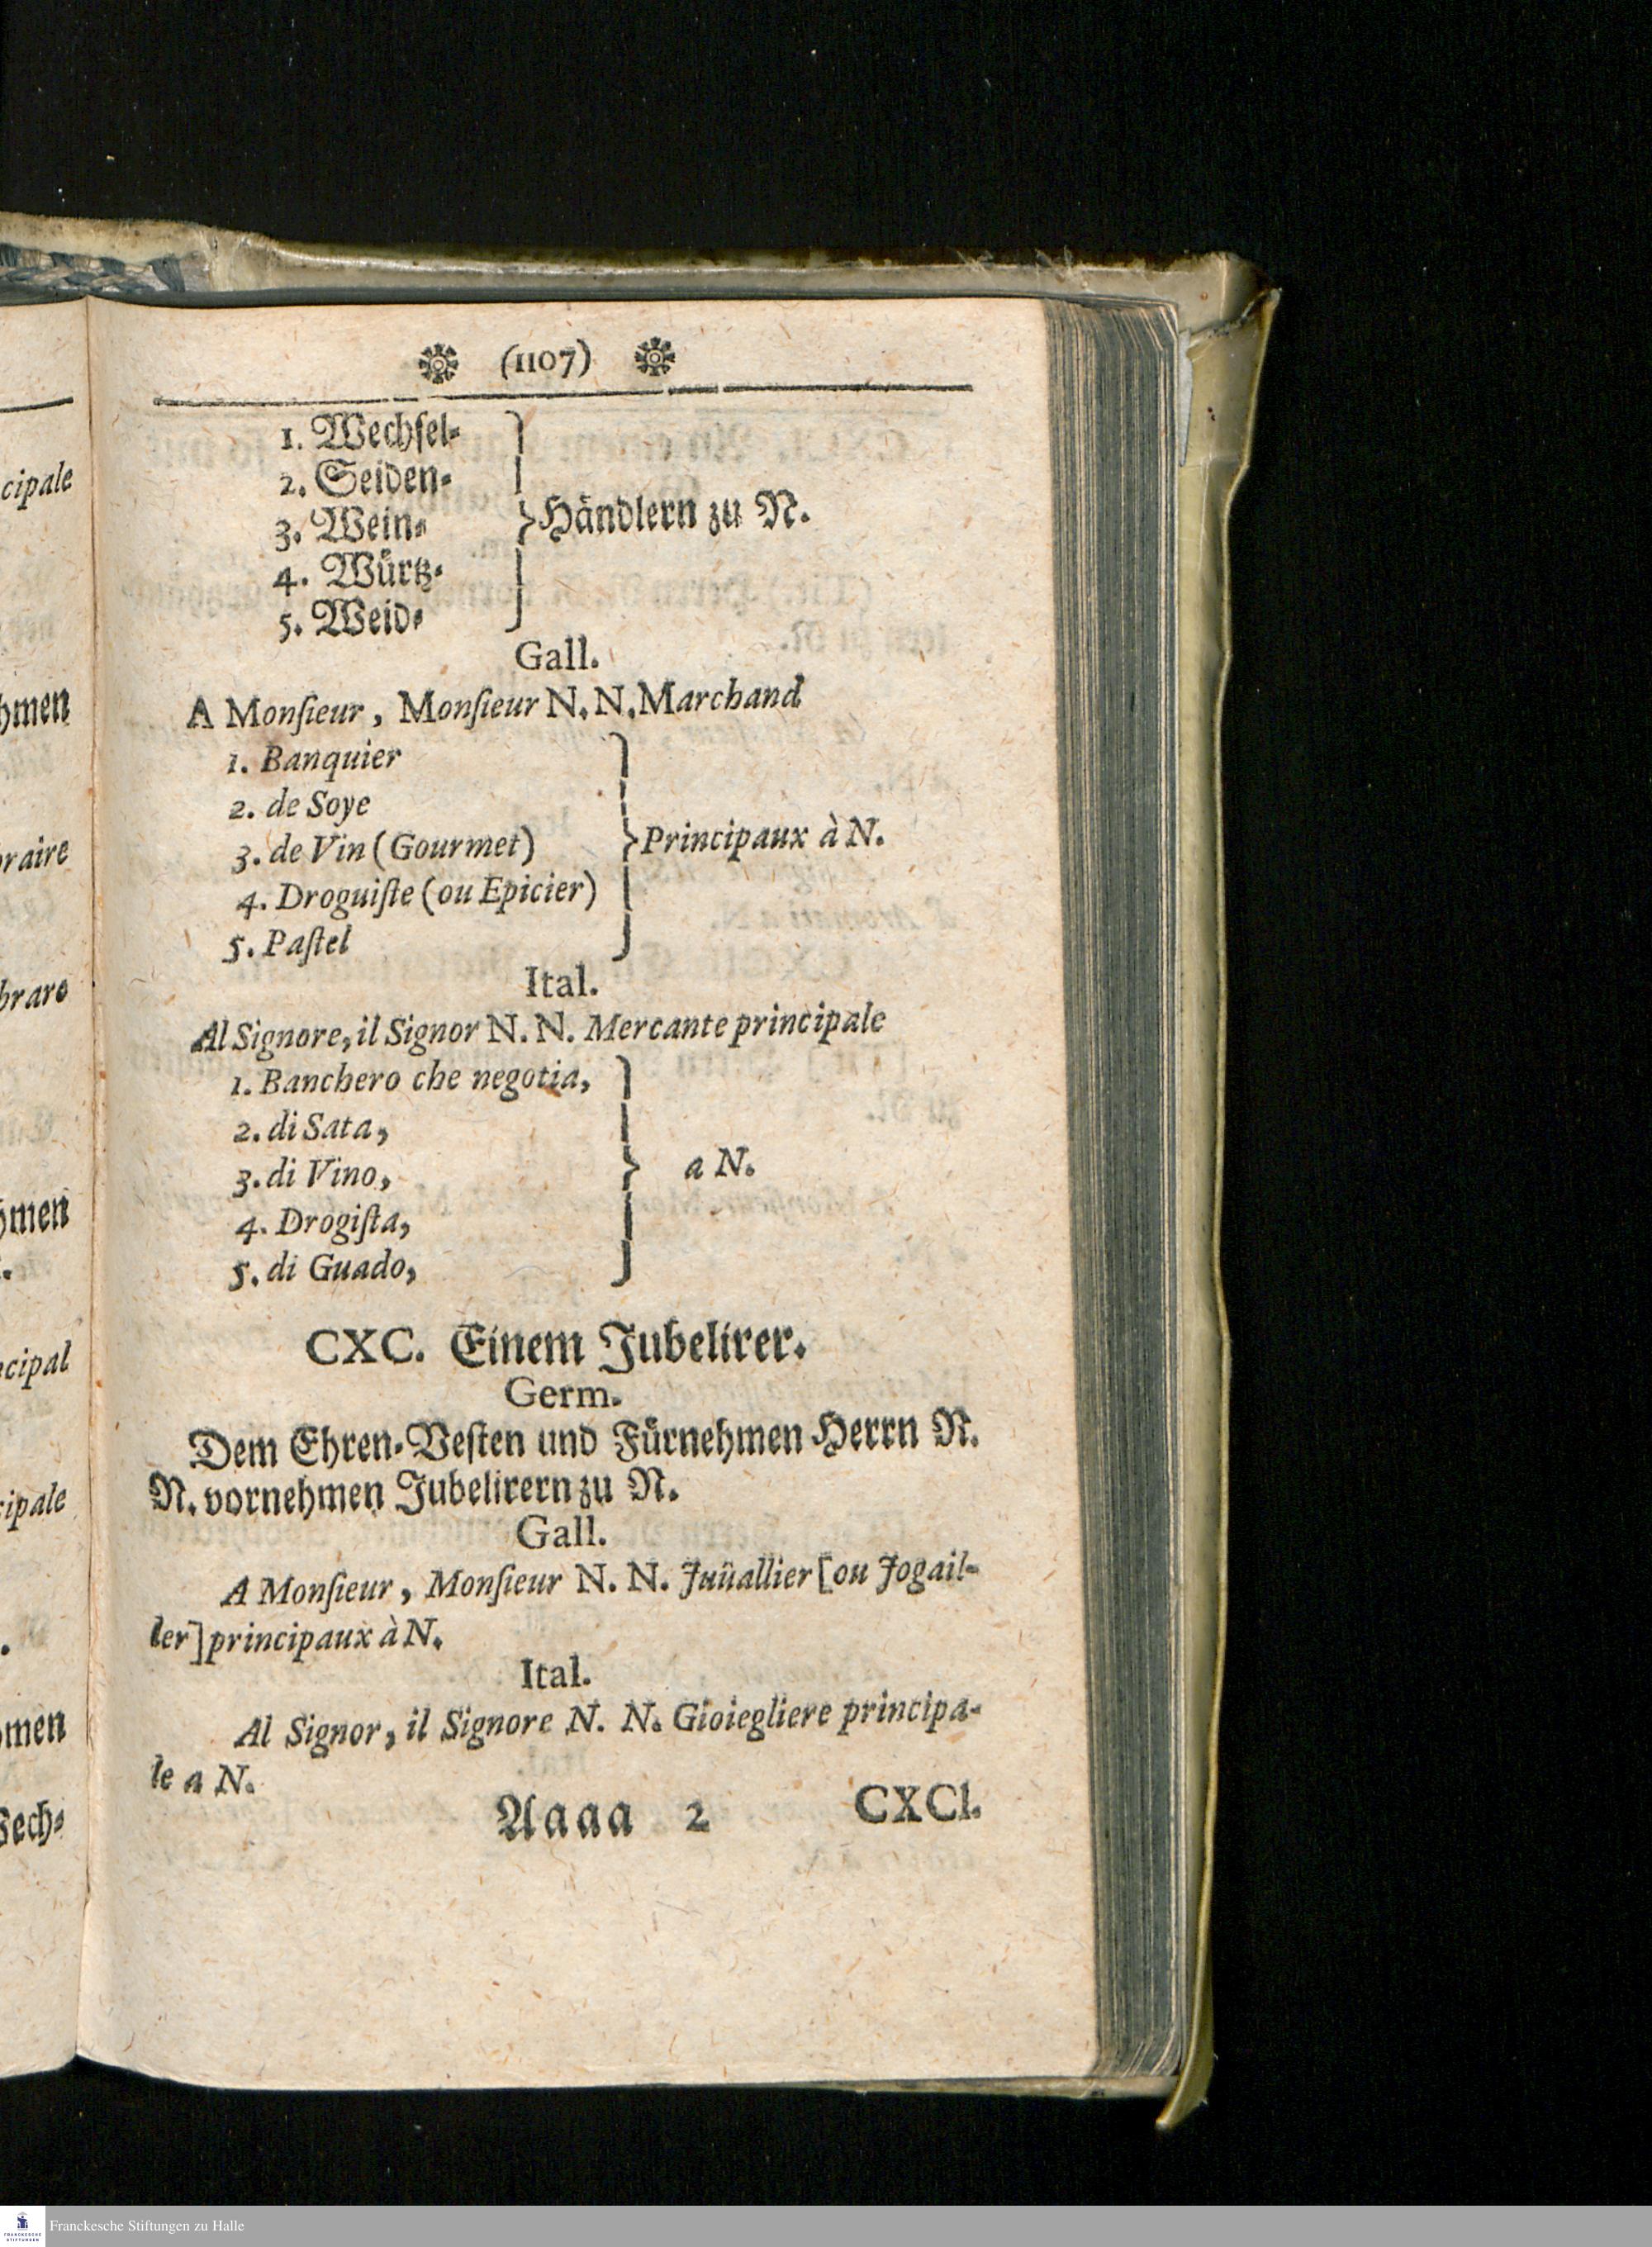 (1107)
1. Wechsel-
2. Seiden-
3. Wein-
4. Würtz-
5. Weid-
Händlern zu N.
Gall.
A Monſieur, Monſieur N. N. Marchand
1. Banquier
2. de Soye
3. de Vin (Gourmet)
4. Droguiſte (ou Epicier)
5. Paſtel
Principaux à N.
Ital.
Al Signore, il Signor N. N. Mercante principale
1. Banchero che negotia,
2. di Sata,
3. di Vino,
4. Drogiſta,
5. di Guado,
a N.
CXC. Einem Jubelirer.
Germ.
Dem Ehren-Veſten und Fürnehmen Herrn N.
N. vornehmen Jubelirern zu N.
Gall.
A Monſieur, Monſieur N. N. Juüallier [ou Jogail-
ler] principaux à N.
Ital.
Al Signor, il Signore N. N. Gioiegliere principa-
le a N.
Aaaa 2 CXCI.
cipale
hmen
raire
brare
hmen
cipal
cipale
hmen
Wech-
Franckesche Stiftungen zu Halle